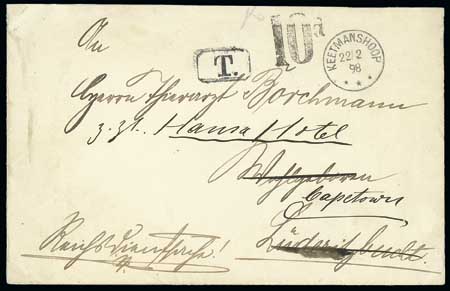 An
10d
T.
KEETMANSHOOP
22/2
98
Herrn Thierarzt Borchmann
z. Zt. Hansa Hotel
Wohlgeboren
Capetown
Reichsdienstsache!
Lüderitzbucht.